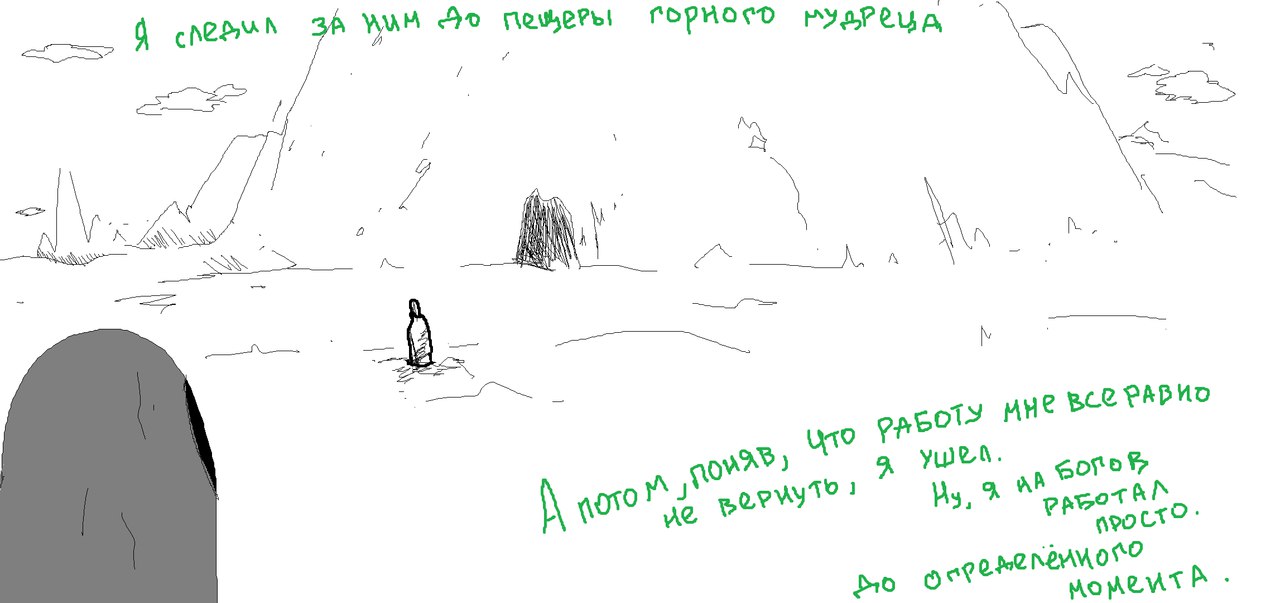 Я следил за ним до пещеры горного мудреца
А потом, поняв, что работу мне все равно
не вернуть, я ушел.
Ну, я на богов
работал
просто.
До определённого
момента.